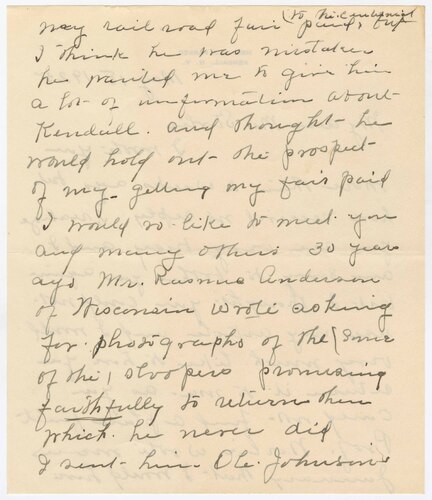 my rail road fair (to the centennial
paid, but
I think he was mistaken
he wanted me to give him
a lot of imformation about
Kendall. and thought he
would hold out the prospect
of my getting my fair paid
I would so like to meet you
and many others 30 years
ago Mr. Rasmus Anderson
of Wisconsin wrote asking
for photographs of the (some
of the) sloopers promising
faithfully to return them
which he never did
I sent him Ole Johnson